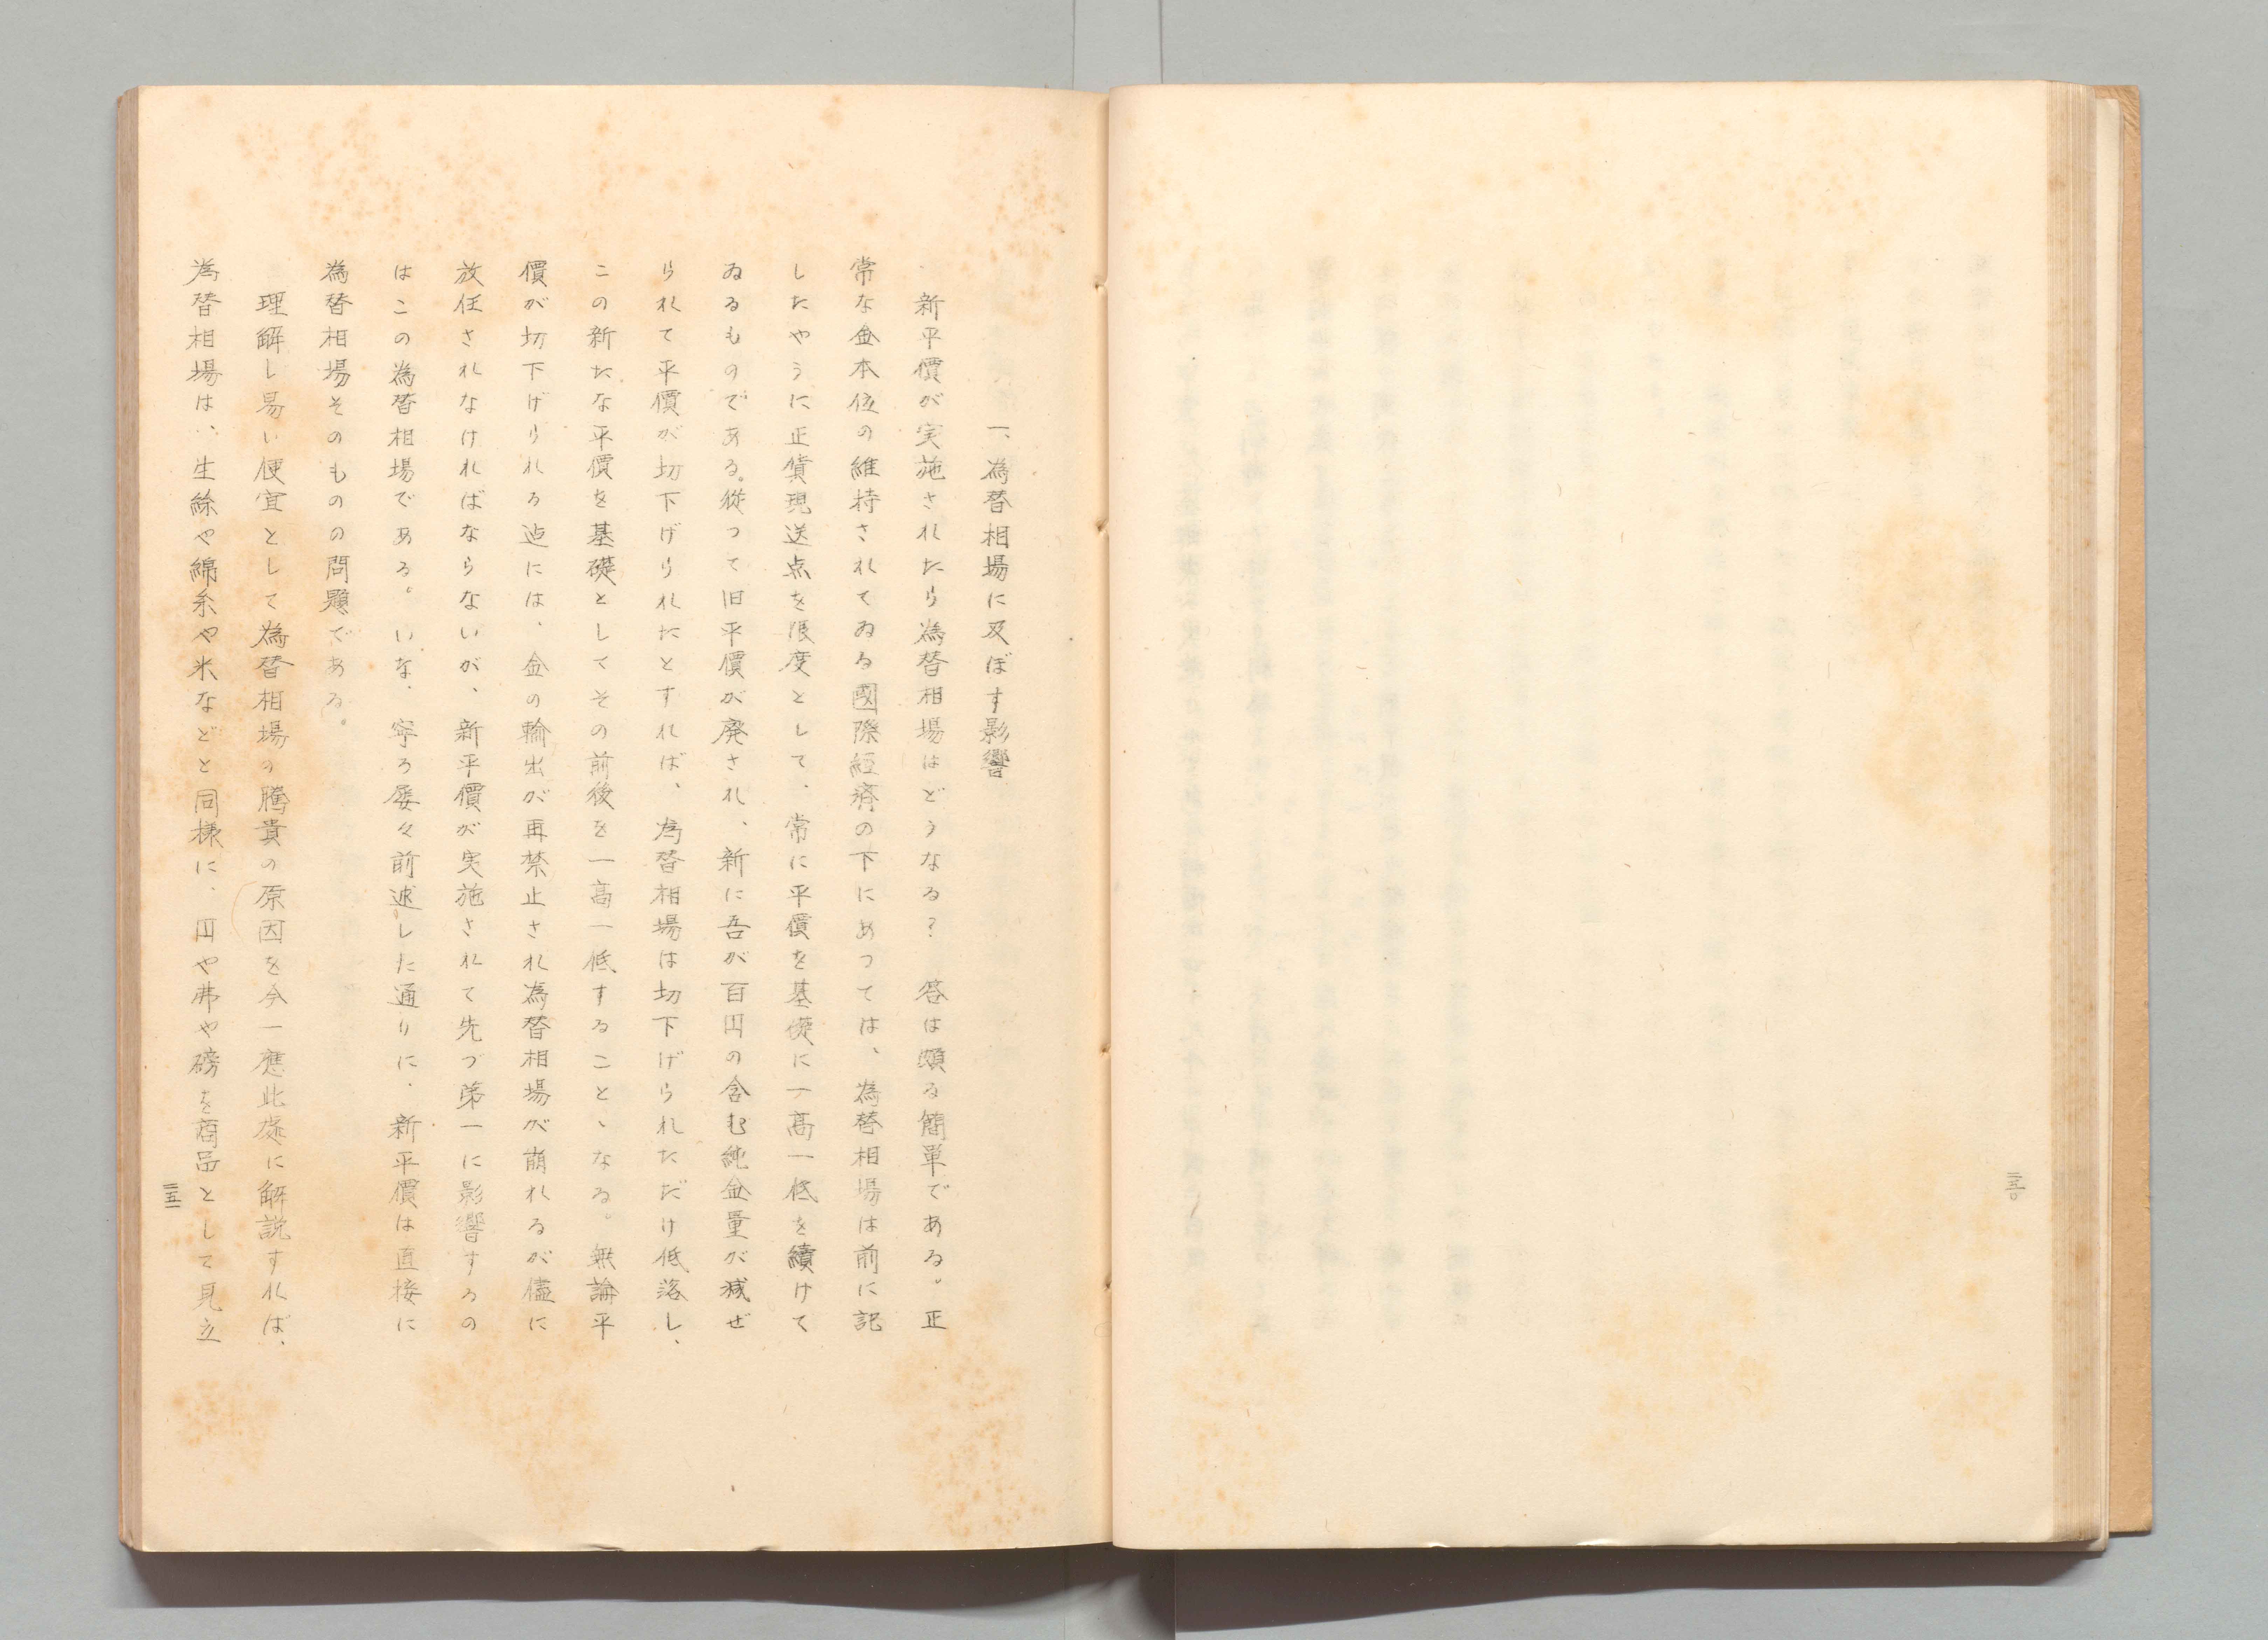 三五〇
一、為替相場に及ぼす影響
新平價が実施されたら為替相場はどうなる？　答は頗る簡単である。正
常な金本位の維持されてゐる國際經濟の下にあつては、為替相場は前に記
したやうに正貨現送点を限度として、常に平價を基礎に一高一低を續けて
ゐるものである。從つて旧平價が廃され、新に吾が百円の含む純金量が減ぜ
られて平價が切下げられたとすれば、為替相場は切下げられただけ低落し、
この新たな平價を基礎としてその前後を一高一低することゝなる。無論平
價が切下げられる迠には、金の輸出が再禁止され為替相場が崩れるが儘に
放任されなければならないが、新平價が実施されて先づ第一に影響するの
はこの為替相場である。いな、寧ろ屡々前述した通りに、新平價は直接に
為替相場そのものの問題である。
理解し易い便宜として為替相場の騰貴の原因を今一應此處に解説すれば、
為替相場は、生絲や綿糸や米などと同様に、円や弗や磅を商品として見立
三五一